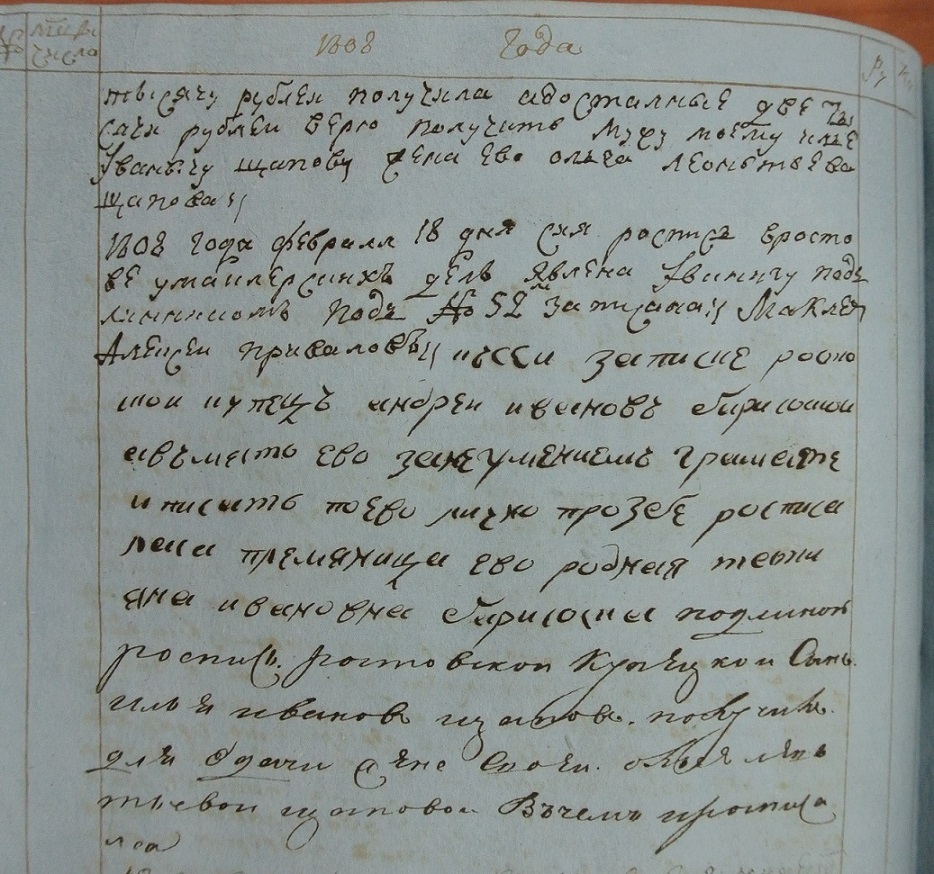 числа
1808 года
ру ко
тысячу рублеи получила адосталные две ты
сячи рублеи верю получить мужу моему илье
Iванычу щапову жена ево олга леонтьева
щапова
1808 года февраля 18 дня сия роспись вросто
ве умаклерскихъ делъ явлена Iвкнигу подъ
линникомъ подъ № 52 м записана Маклеръ
Алексеи приваловъ ксеи записке росто
вкои купецъ андреи ивановъ
авъместо ево занеумениемъ грамате
иписать поево лично прозбе росписа
лася племяница ево родная татьи
яна ивановна подлинои
роспись ростовскои купецкои сынъ
илья ивановъ щаповъ получилъ
для одачи жене своеи ольге леонъ
тьевои щаповои въчемъ иросписа
лса